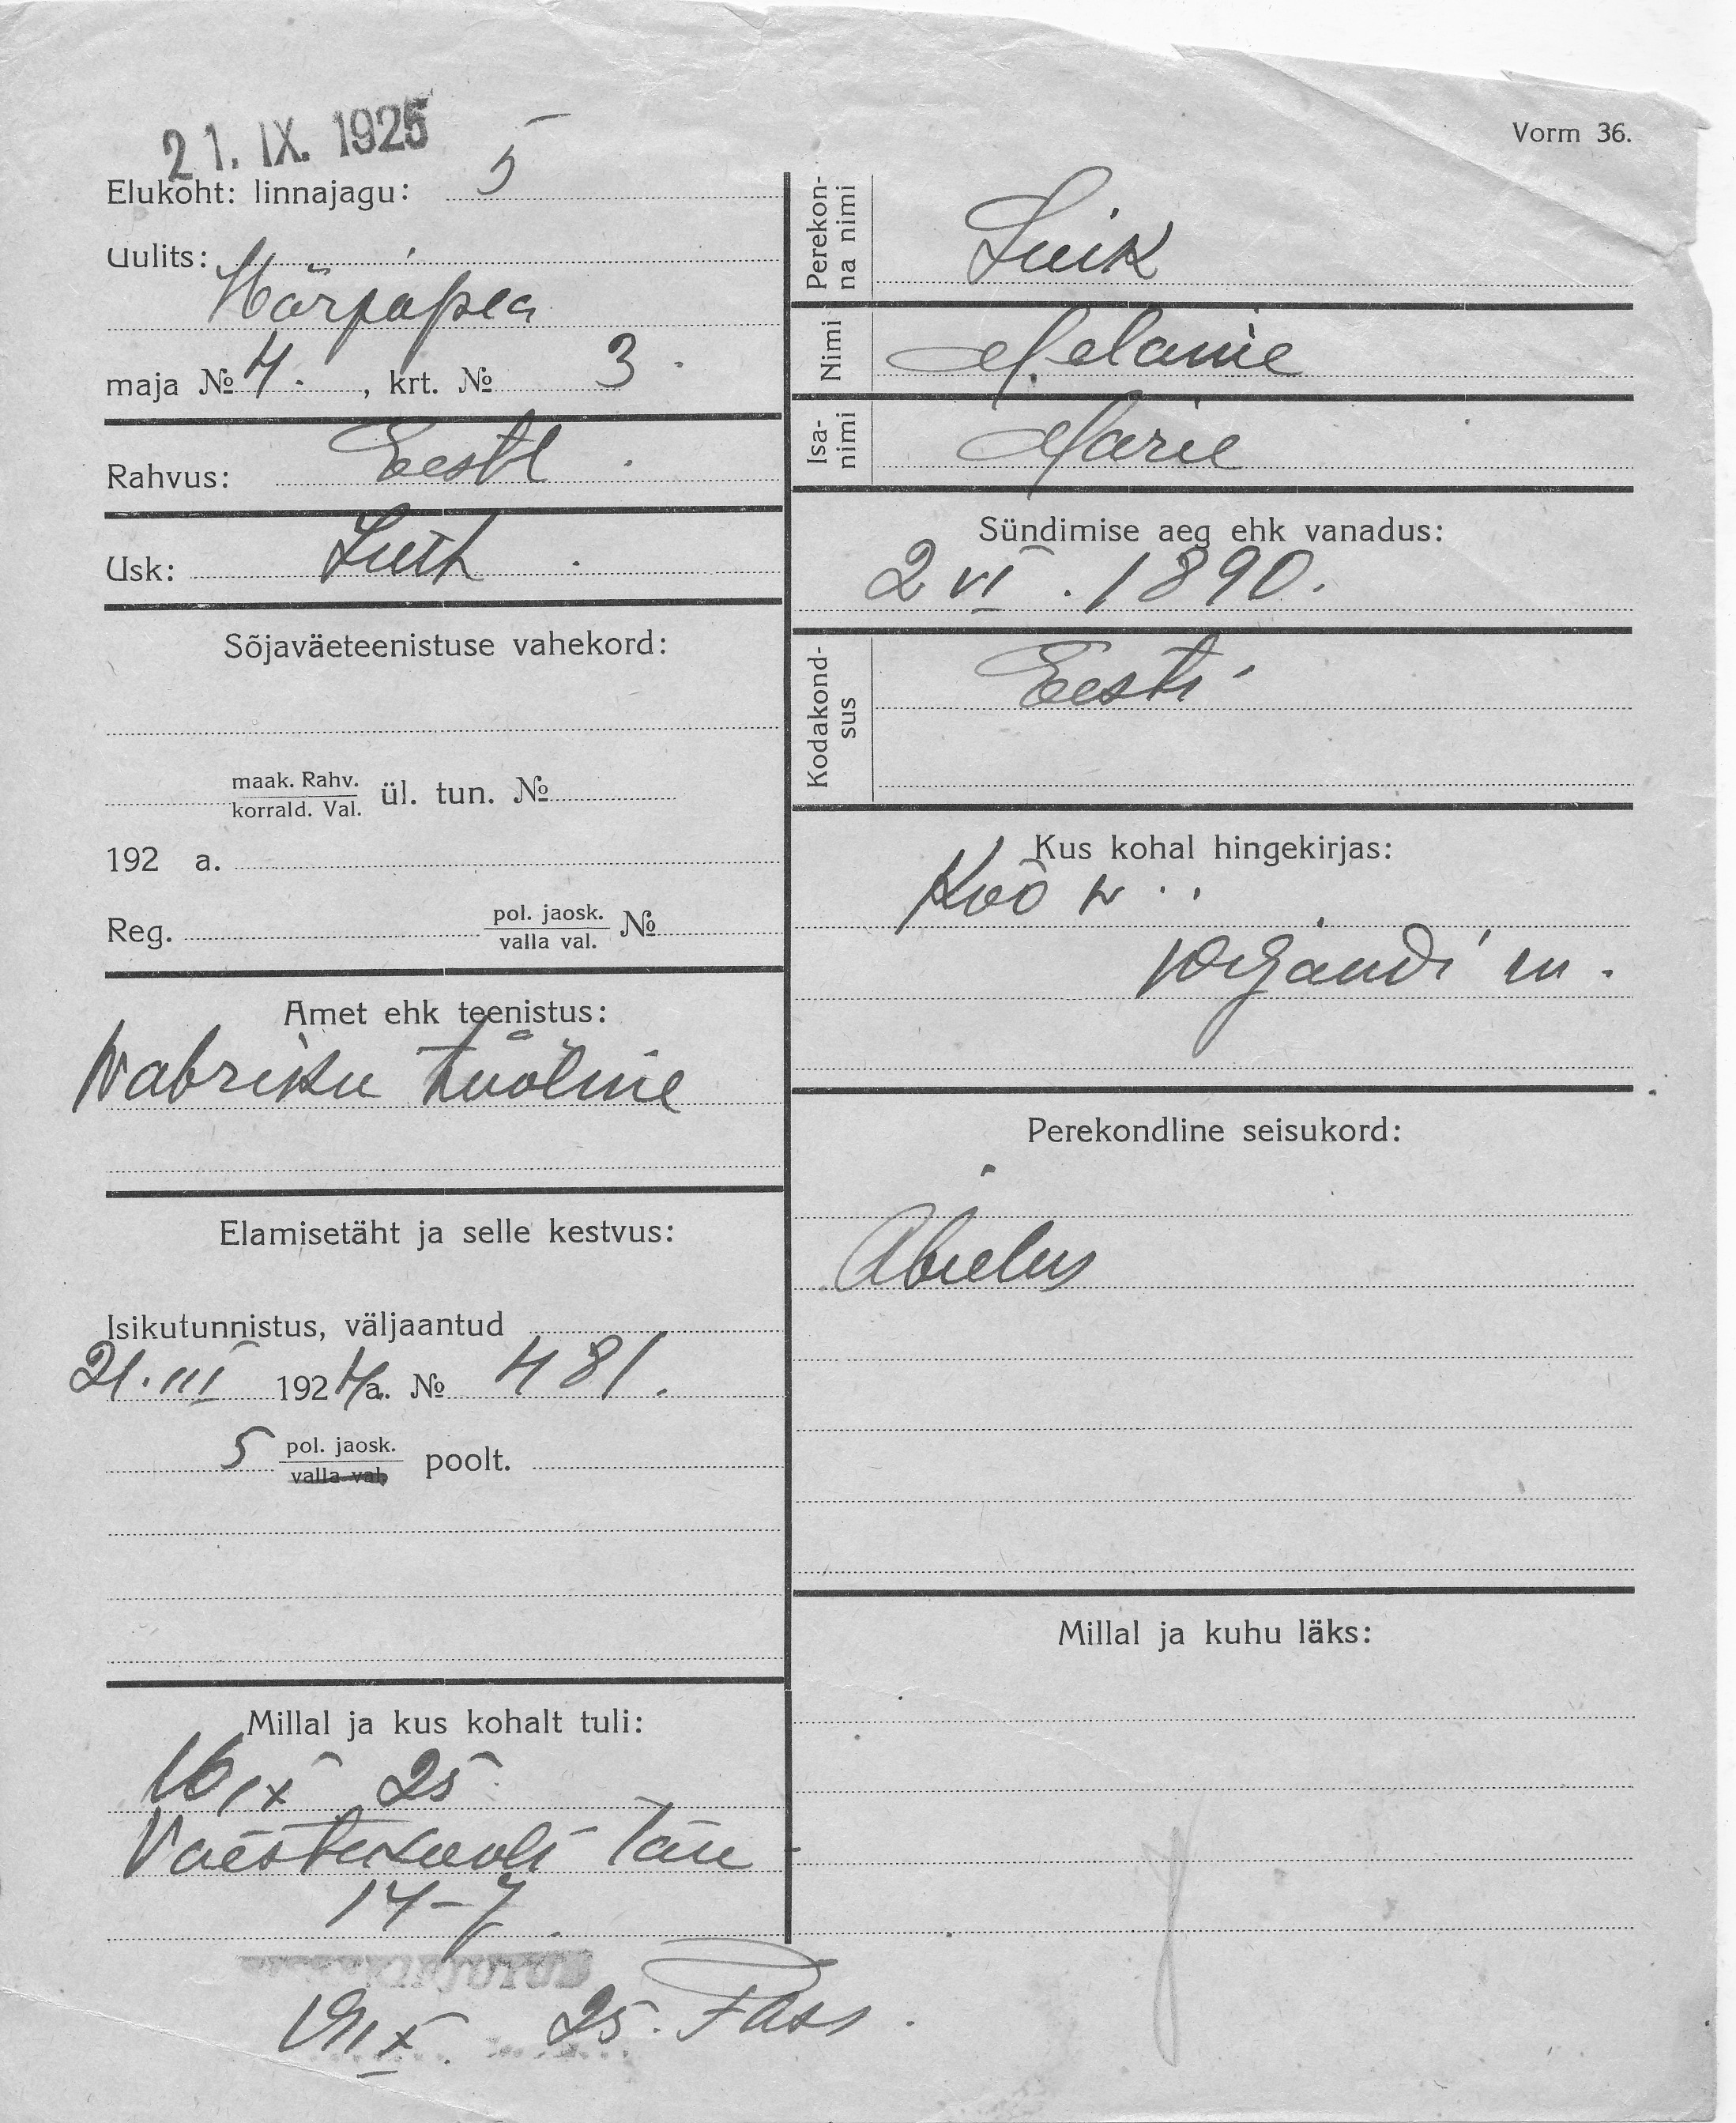 21. IX. 1925
Vorm 36.
Elukoht: linnajagu: 5
Uulits:
Härjapea
maja № 4. , krt. № 3.
Rahvus: Eesti.
Usk: Luth.
Sõjaväeteenistuse vahekord:
maak. Rahv.
korrald. Val. ül. tun. №
192 a.
Reg. pol. jaosk.
valla val. №
Amet ehk teenistus:
Wabriku tööline
Elamisetäht ja selle kestvus:
Isikutunnistus, väljaantud
21.III 1924 a. № 481.
5 pol. jaosk.
valla val. poolt.
Millal ja kus kohalt tuli:
16 IX 25
Vaestekooli tän
14-7.
Perekon-
na nimi Luik
Nimi Melanie
Isa-
nimi Marie
Sündimise aeg ehk vanadus:
2 VI. 1890.
Kodakond-
sus Eesti
Kus kohal hingekirjas:
Kõo w.
Viljandi m.
Perekondline seisukord:
Abielus
Millal ja kuhu läks:
IX. 25.